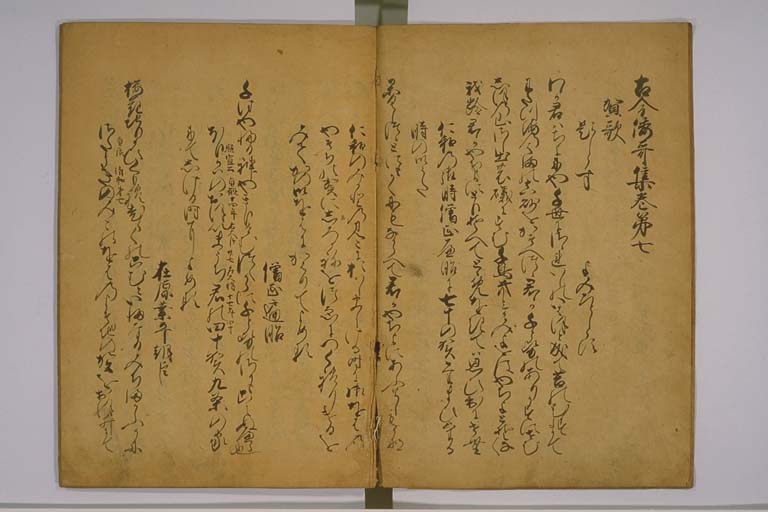 古今倭哥集巻第七
賀歌
題しらす　よみひとしらす
わか君はちよにやちよにさゝれいしのいはほとなりて苔のむすまて
わたつ海の濱の真砂をかそへつゝ君か千とせのありかすにせむ
しほの山さしての磯にすむ千鳥君か御代をはやちよとそなく
我齢君かやちよにとりそへてとゝめをきては思ひいてにせよ
仁和の御時僧正遍昭に七十の賀たまひける
時の御うた
かくしつゝとにもかくにもなからへて君かやちよにあふよしもかな
仁和のみかとのみこにおはしましける時に御をはの
やそちの賀にしろかねを杖につくれりけるを
みてかの御をはにかはりてよめる
僧正遍昭
ちはやふる神やきりけむつくからに千とせの坂もこえぬへら也
ほりかはのおほいまうち君の四十賀九条の家
にてしける時によめる
在原業平朝臣
桜花ちりかひくもれおいらくのこむといふなるみちまかふかに
さたときのみこのをはのよそちの賀を